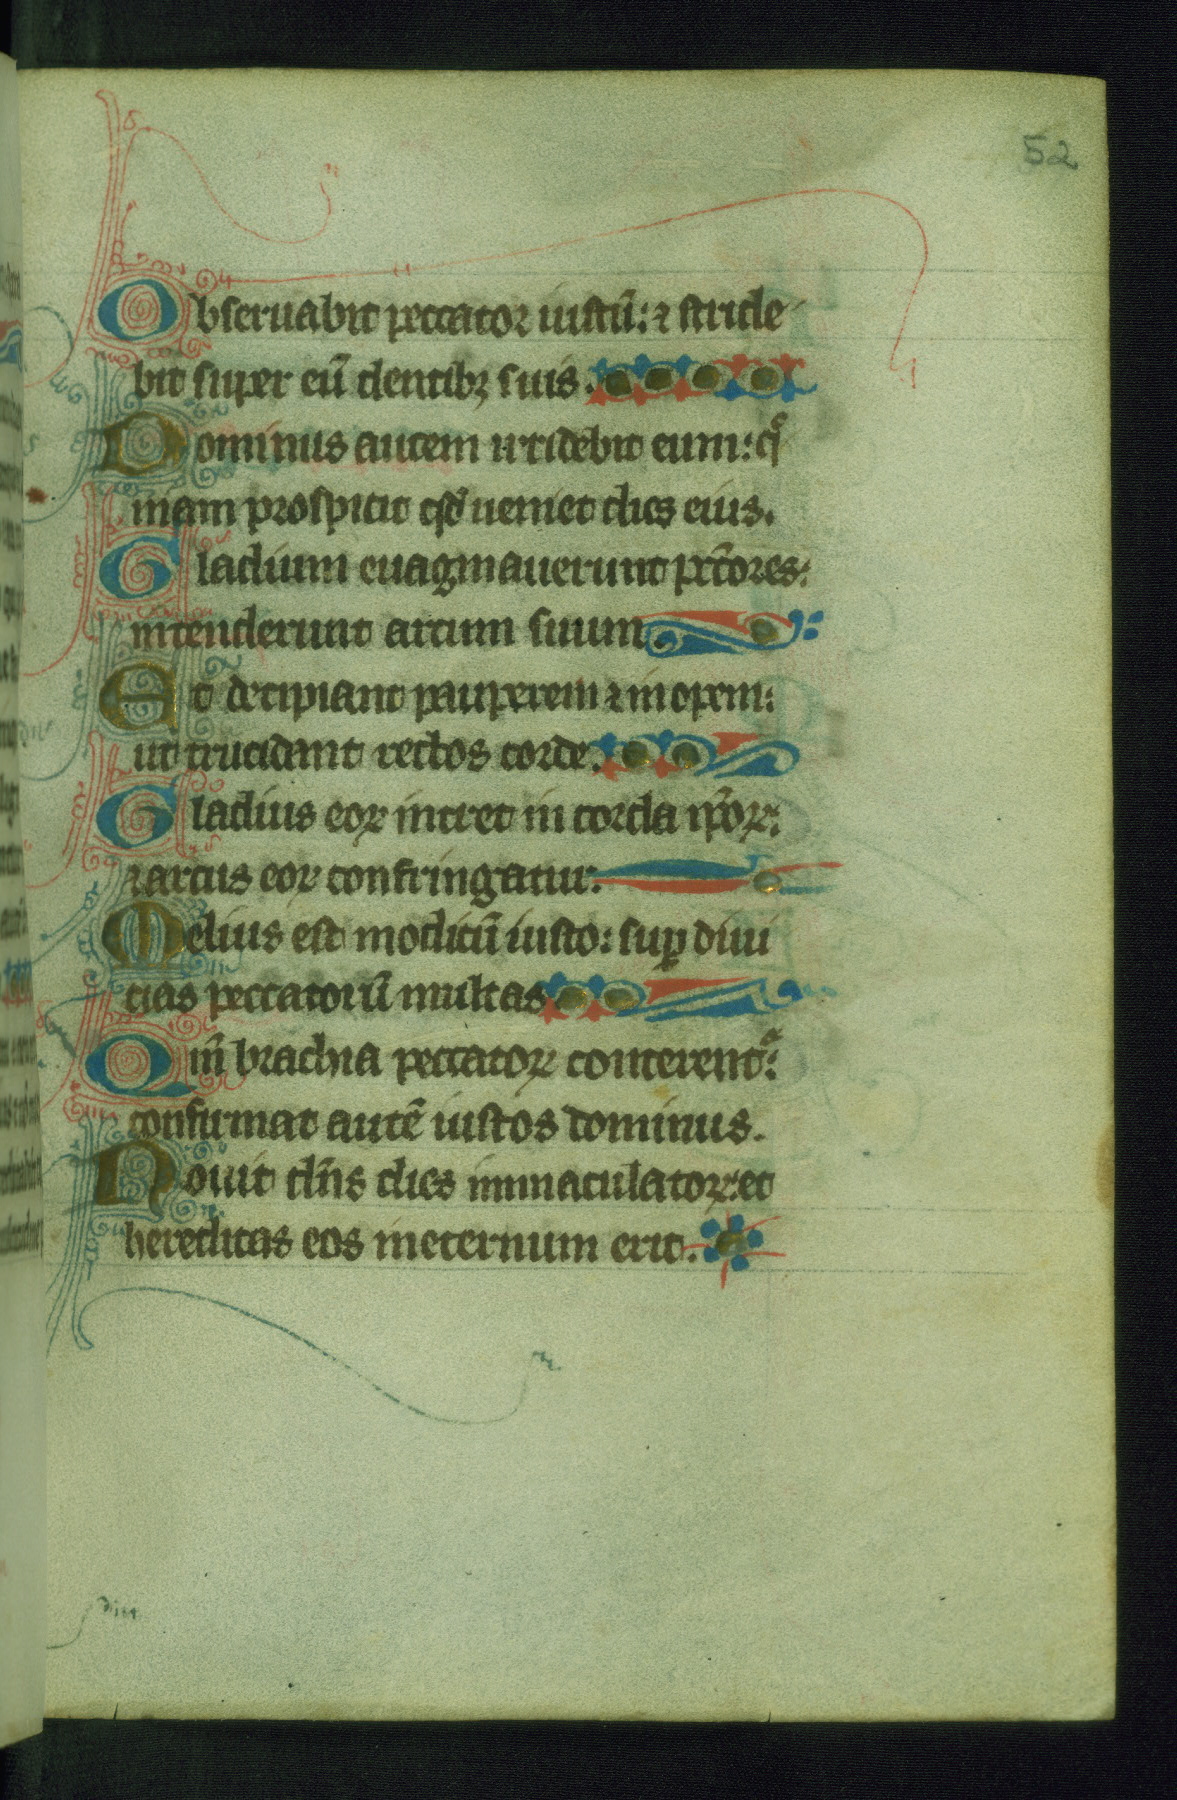 52
Obseruabit peccator iustū: ⁊ stride
bit super eū dentibꝫ suis.
Dominus autem irridebit eum: qͦ
niam prospicit qd̄ ueniet dies eius.
Gladium euaginauerunt pct̄ores:
intenderunt arcum suum.
Et decipiant pauperem ⁊ inopem:
ut trucident rectos corde.
Gladius eoꝝ intret in corda ip̄oꝝ:
⁊ arcus eoꝝ confringatur.
Melius est modicū iusto: suꝑ diui
cias peccatorū multas
Qm̄ brachia peccatoꝝ conterentᷓ:
confirmat autē iustos dominus.
Nouit dn̄s dies immaculatoꝝ: et
hereditas eos in eternum erit.